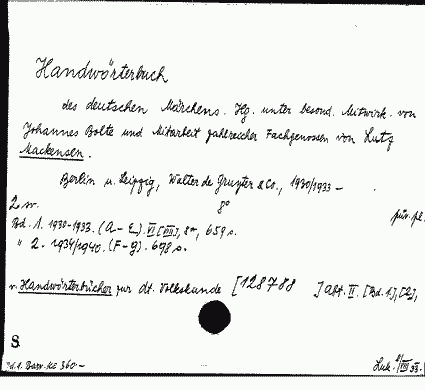 Handwörterbuch
des deutschen Märchens. Hg. unter besond. Mitwirk. von
Johannes Bolte und Mitarbeit zahlreicher Fachgenossen von Lutz
Mackensen.
Berlin u. Leipzig, Walter de Gruyter & Co., 1930/1933 –
2 w. 8°
Bd. 1. 1930-1933. (A-E). VI [VII], 659 s.
" 2. 1934/1940. (F-G). 698 s.
Handwörterbücher zur dt. Volkskunde [128788 ] Abt. II. [Bd. 1], [2],
S